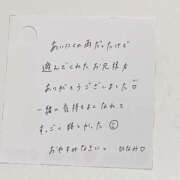 あいにくの雨だったけど
遊んでくれたお兄様
ありがとうございました♡
一緒に気持ちよくなれて
すっごく嬉しかった☺
おやすみなさい〜 ひなみ♡